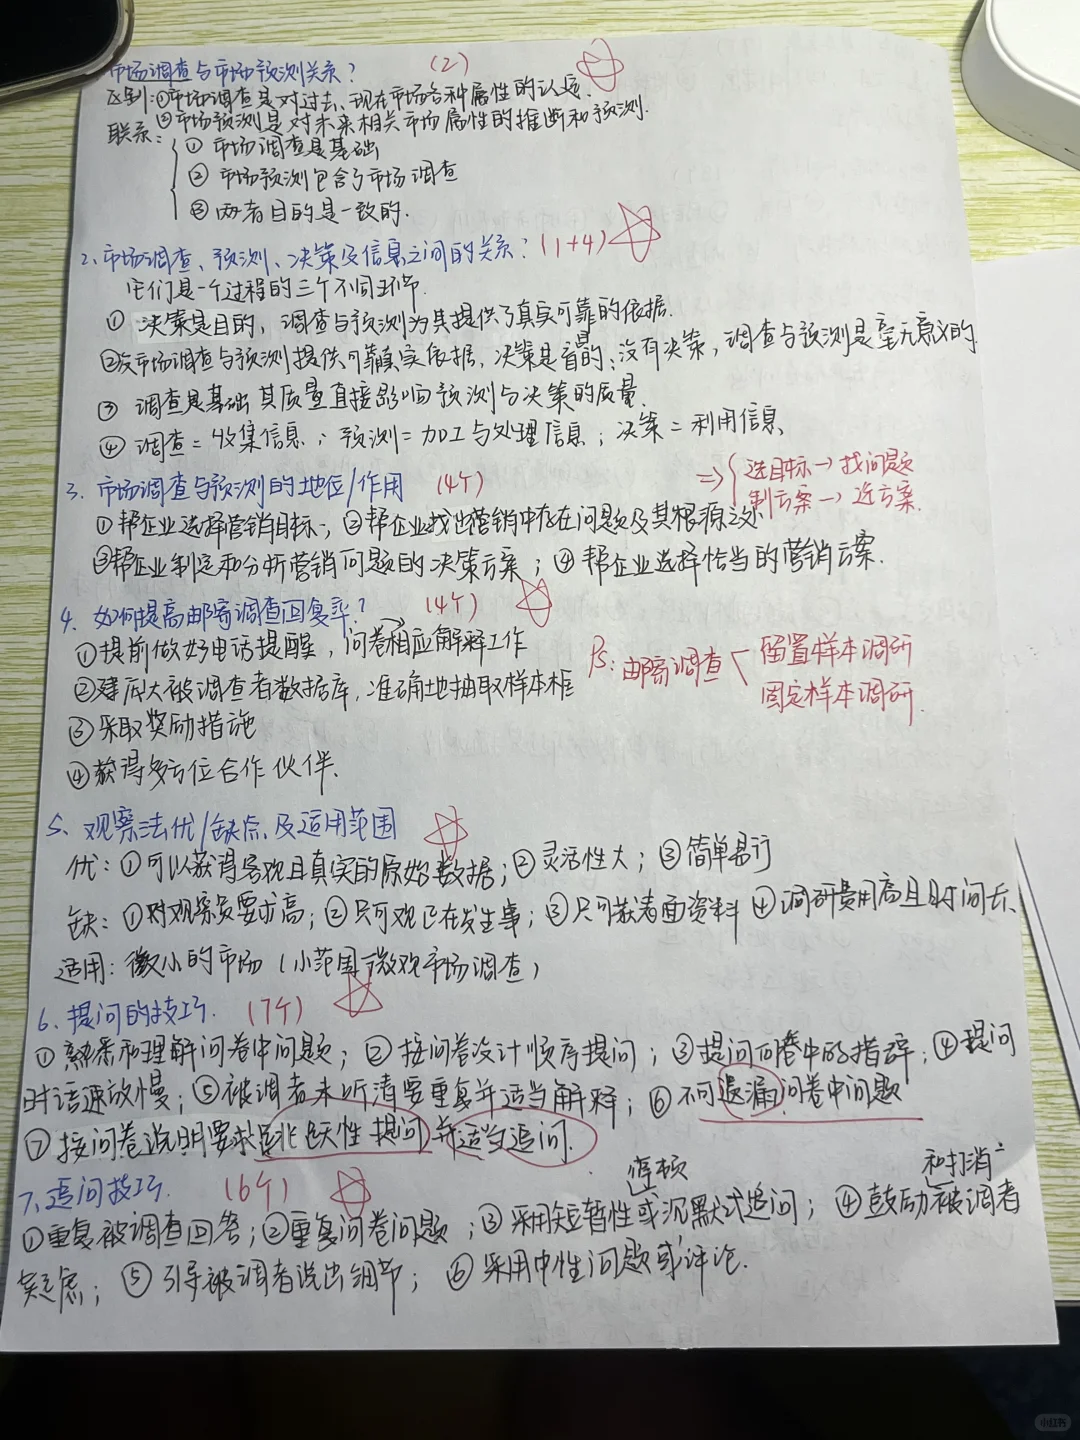 市场调查与市场预测关系？ (2)
区别:①市场调查是对过去、现在市场各种属性的认远.
②市场预测是对未来相关市场属性的推断和预测.
联系:
① 市场调查是基础
② 市场预测包含了市场调查
③ 两者目的是一致的.
2、市场调查、预测、决策及信息之间的关系? (1+4)
它们是一个过程的三个不同环节.
① 决策是目的, 调查与预测为其提供了真实可靠的依据.
②没市场调查与预测提供可靠真实依据, 决策是盲目的; 没有决策, 调查与预测是毫无意义的.
③ 调查是基础 其质量直接影响预测与决策的质量.
④ 调查=收集信息; 预测=加工与处理信息; 决策=利用信息、
3、市场调查与预测的地位/作用 (4个)
⇒ 选目标→找问题
制方案→近方案.
①帮企业选择营销目标; ②帮企业找出营销中存在问题及其根源之处
③帮企业制定和分析营销问题的决策方案; ④帮企业选择恰当的营销方案.
4、如何提高邮寄调查回复率? (4个)
①提前做好电话提醒, 问卷相应解释工作
②建庞大被调查者数据库, 准确地抽取样本框
③采取奖励措施
④获得多方位合作伙伴.
PS: 邮寄调查 < 留置样本调研
固定样本调研.
5、观察法优/缺点及适用范围
优: ①可以获得客观且真实的原始数据; ②灵活性大; ③简单易行
缺: ①对观察员要求高; ②只可观已在发生事; ③只可获表面资料 ④调研费用高且时间长、
适用: 微小的市场 (小范围微观市场调查)
6、提问的技巧. (7个)
① 熟悉和理解问卷中问题; ② 按问卷设计顺序提问; ③提问问卷中的措辞; ④提问
时语速放慢; ⑤被调者未听清要重复并适当解释; ⑥不可遗漏问卷中问题
⑦ 按问卷说明要求 跳跃性提问 并适当追问.
7、追问技巧. (6个)
停顿 和打消
①重复被调查回答; ②重复问卷问题; ③采用短暂性或沉默式追问; ④鼓励被调者
疑虑; ⑤ 引导被调者说出细节; ⑥ 采用中性问题或评论.
小红书